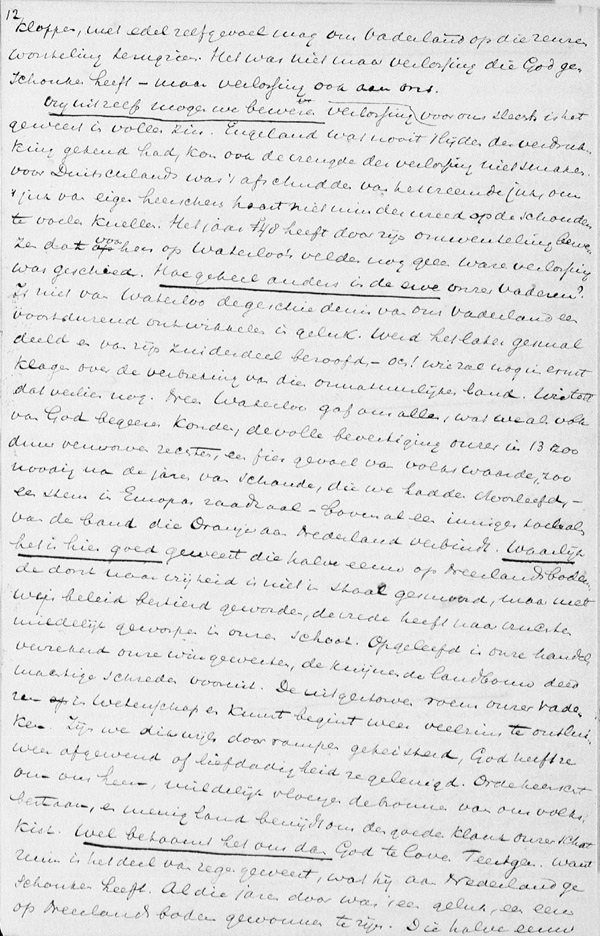 12
kloppen, met edel zelfgevoel mag ons Vaderland op die reuzen
worsteling terugzien. Het was niet maar verlossing die God ge
schonken heeft – maar verlossing ook aan ons.
Vrij uit zelf mogen we beweren verlossing voor ons slechts is het
geweest in vollen zin. Engeland was nooit lijder der verdruk-
king gekend had, kon ook de vreugde der verlossing niet smaken.
voor Duitschland was 't afschudden van het vreemde juk, om
't juk van eigen heerschers haast niet minder wreed op de schouders
te voelen knellen. Het jaar '48 heeft door zijn omwenteling bewe
zen dat voor hen op Waterloo's velden nog geen ware verlossing
was geschied. Hoe geheel anders is de eeuw onzer vaderen?
Is niet van Waterloo de geschiedenis van ons vaderland een
voortdurend ontwikkelen in geluk. Werd het later gesmal
deeld en van zijn Zuiderdeel beroofd, – och! wie zal nog in ernst
klagen over de verbreking van die onnatuurlijken band.
dat verlies nog. Neen Waterloo gaf ons alles, wat we als volk
van God begeeren konden, de volle bevestiging onzer in 13 zoo
duur verworven rechten, een fier gevoel van volkswaarde, zoo
noodig na de jaren van schande, die we hadden doorleefd, –
een stem in Europa's raadzaal – bovenal een inniger toehalen
van de band die Oranje aan Nederland verbindt. Waarlijk
het is hier goed geweest die halve eeuw op Neerlands bodem.
de dorst naar vrijheid is niet in staal gesmoord, maar met
wijs beleid bestierd geworden, de vrede heeft haar vruchten
mildelijk geworpen in onzen schoot. Opgeleefd is onze handel,
verrekend onze wingewesten, de kwijnende landbouw deed
machtige schreden vooruit. De uitgestorven roem onzer vade
ren in Wetenschap en Kunst begint weer veelzins te ontlui-
ken. Zijn we dikwijls door rampen geteisterd, God heeft ze
weer afgewend of liefdadigheid ze gelenigd. Orde heerscht
om ons heen, mildelijk vloeyen de bronnen van ons volks
bestaan, en menig land benijdt ons den goeden klank onzer schat
kist. Wel betaamt het ons dan God te loven Teestgen. Want
ruim is het deel van zegen geweest, wat hij aan Nederland ge
schonken heeft. Al die jaren door was 't een geluk, een eer
op Neerlands bodem gewonnen te zijn. Die halve eeuw